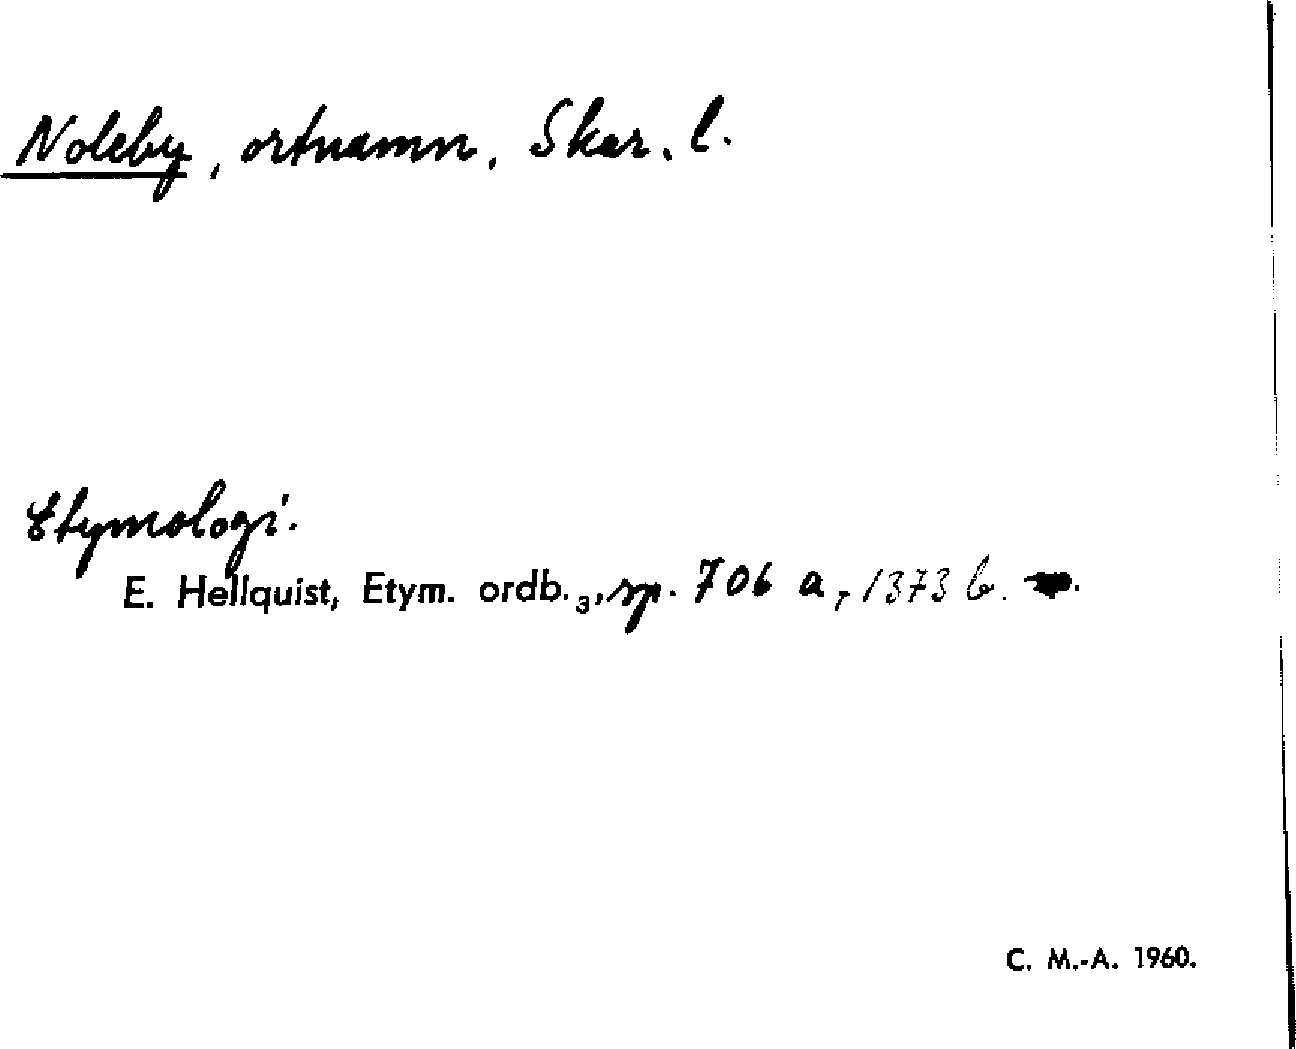 Noleby, ortnamn, Skar. l.
Etymologi.
E. Hellquist, Etym. ordb. 3, sp. 706 a, 1373 b.
C. M.-A. 1960.